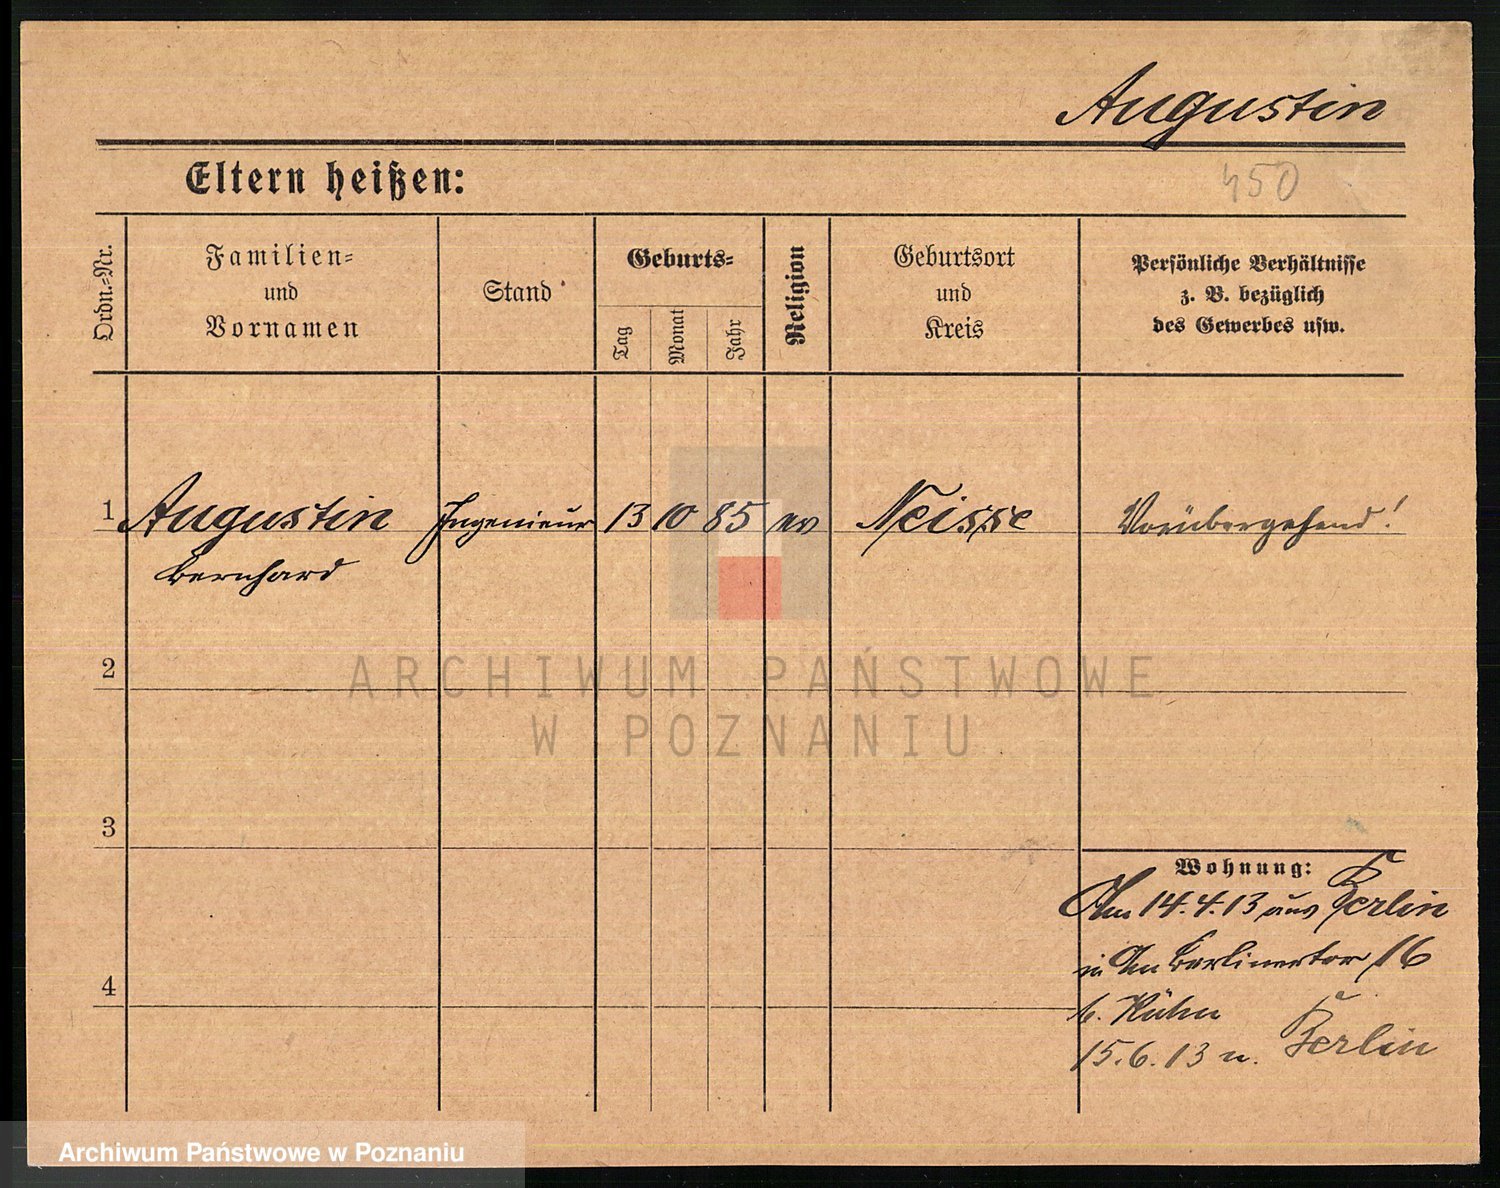 Augustin
Eltern heißen:
450
Ordn.-Nr.
Familien-
und
Vornamen
Stand
Geburts-
Tag
Monat
Jahr
Religion
Geburtsort
und
Kreis
Persönliche Verhältnisse
z. B. bezüglich
des Gewerbes usw.
1 Augustin Ingenieur 13 10 85 ev Neisse Vorübergehend!
Bernhard
2
ARCHIWUM PAŃSTWOWE
W POZNANIU
3
Wohnung:
Am 14.4.13 aus Berlin
in Am Berlinertor 16
4
b. Kühn
15.6.13 n. Berlin
Archiwum Państwowe w Poznaniu